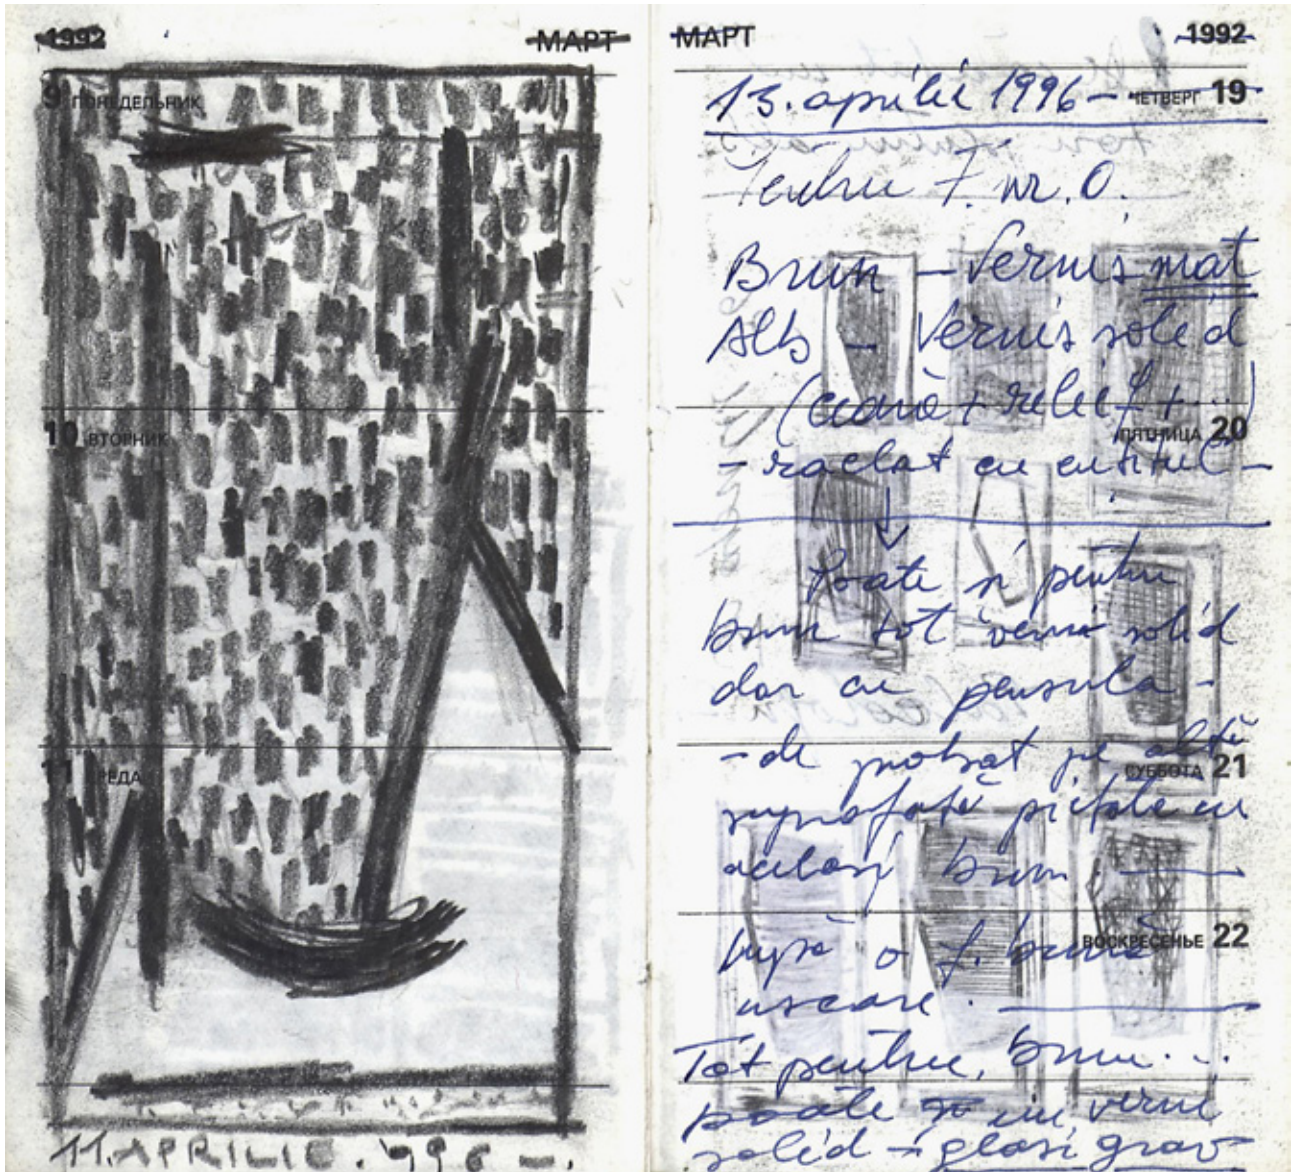 1992 МАРТ
9 ПОНЕДЕЛЬНИК
10 ВТОРНИК
11 СРЕДА
11. APRILIE. 996 -.
МАРТ 1992
13. aprilie 1996 - ЧЕТВЕРГ 19
Pentru F. nr. 0.
Brun - Vernis mat
Alb - Vernis solid
(ceară + relief + ...)
ПЯТНИЦА 20
- raclat cu cuțitul -
Poate și pentru
brun tot verni solid
dar cu pensula -
- de probat pe altă
СУББОТА 21
suprafață pictată cu
același brun.
După o f. bună
ВОСКРЕСЕНЬЕ 22
uscare.
Tot pentru brun...
poate și un verni
solid + glasi grav